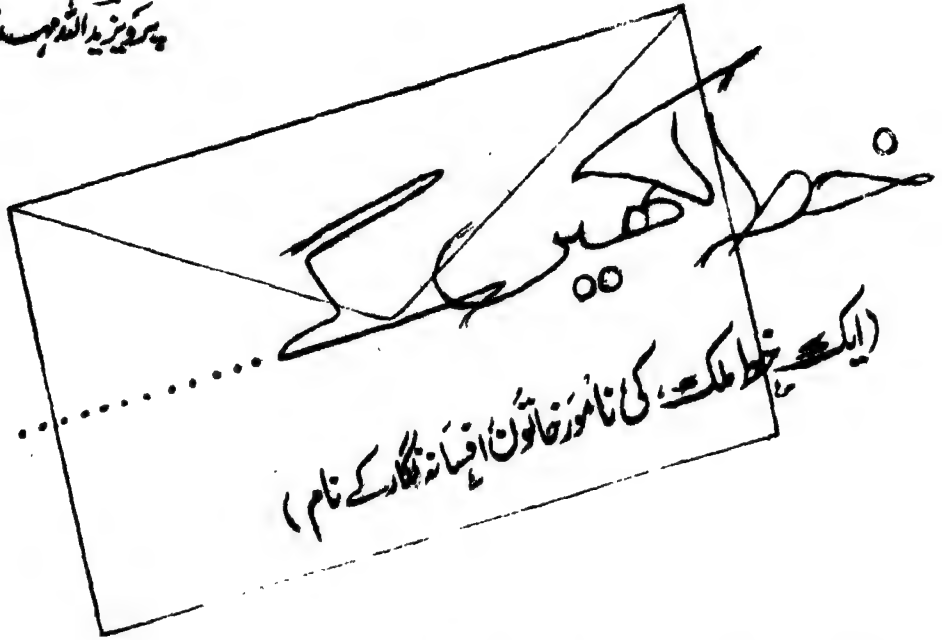 پرویز یداللہ مہدی
خط لکھیں گے ........
(ایک خط ملک کی نامور خاتون افسانہ نگار کے نام)